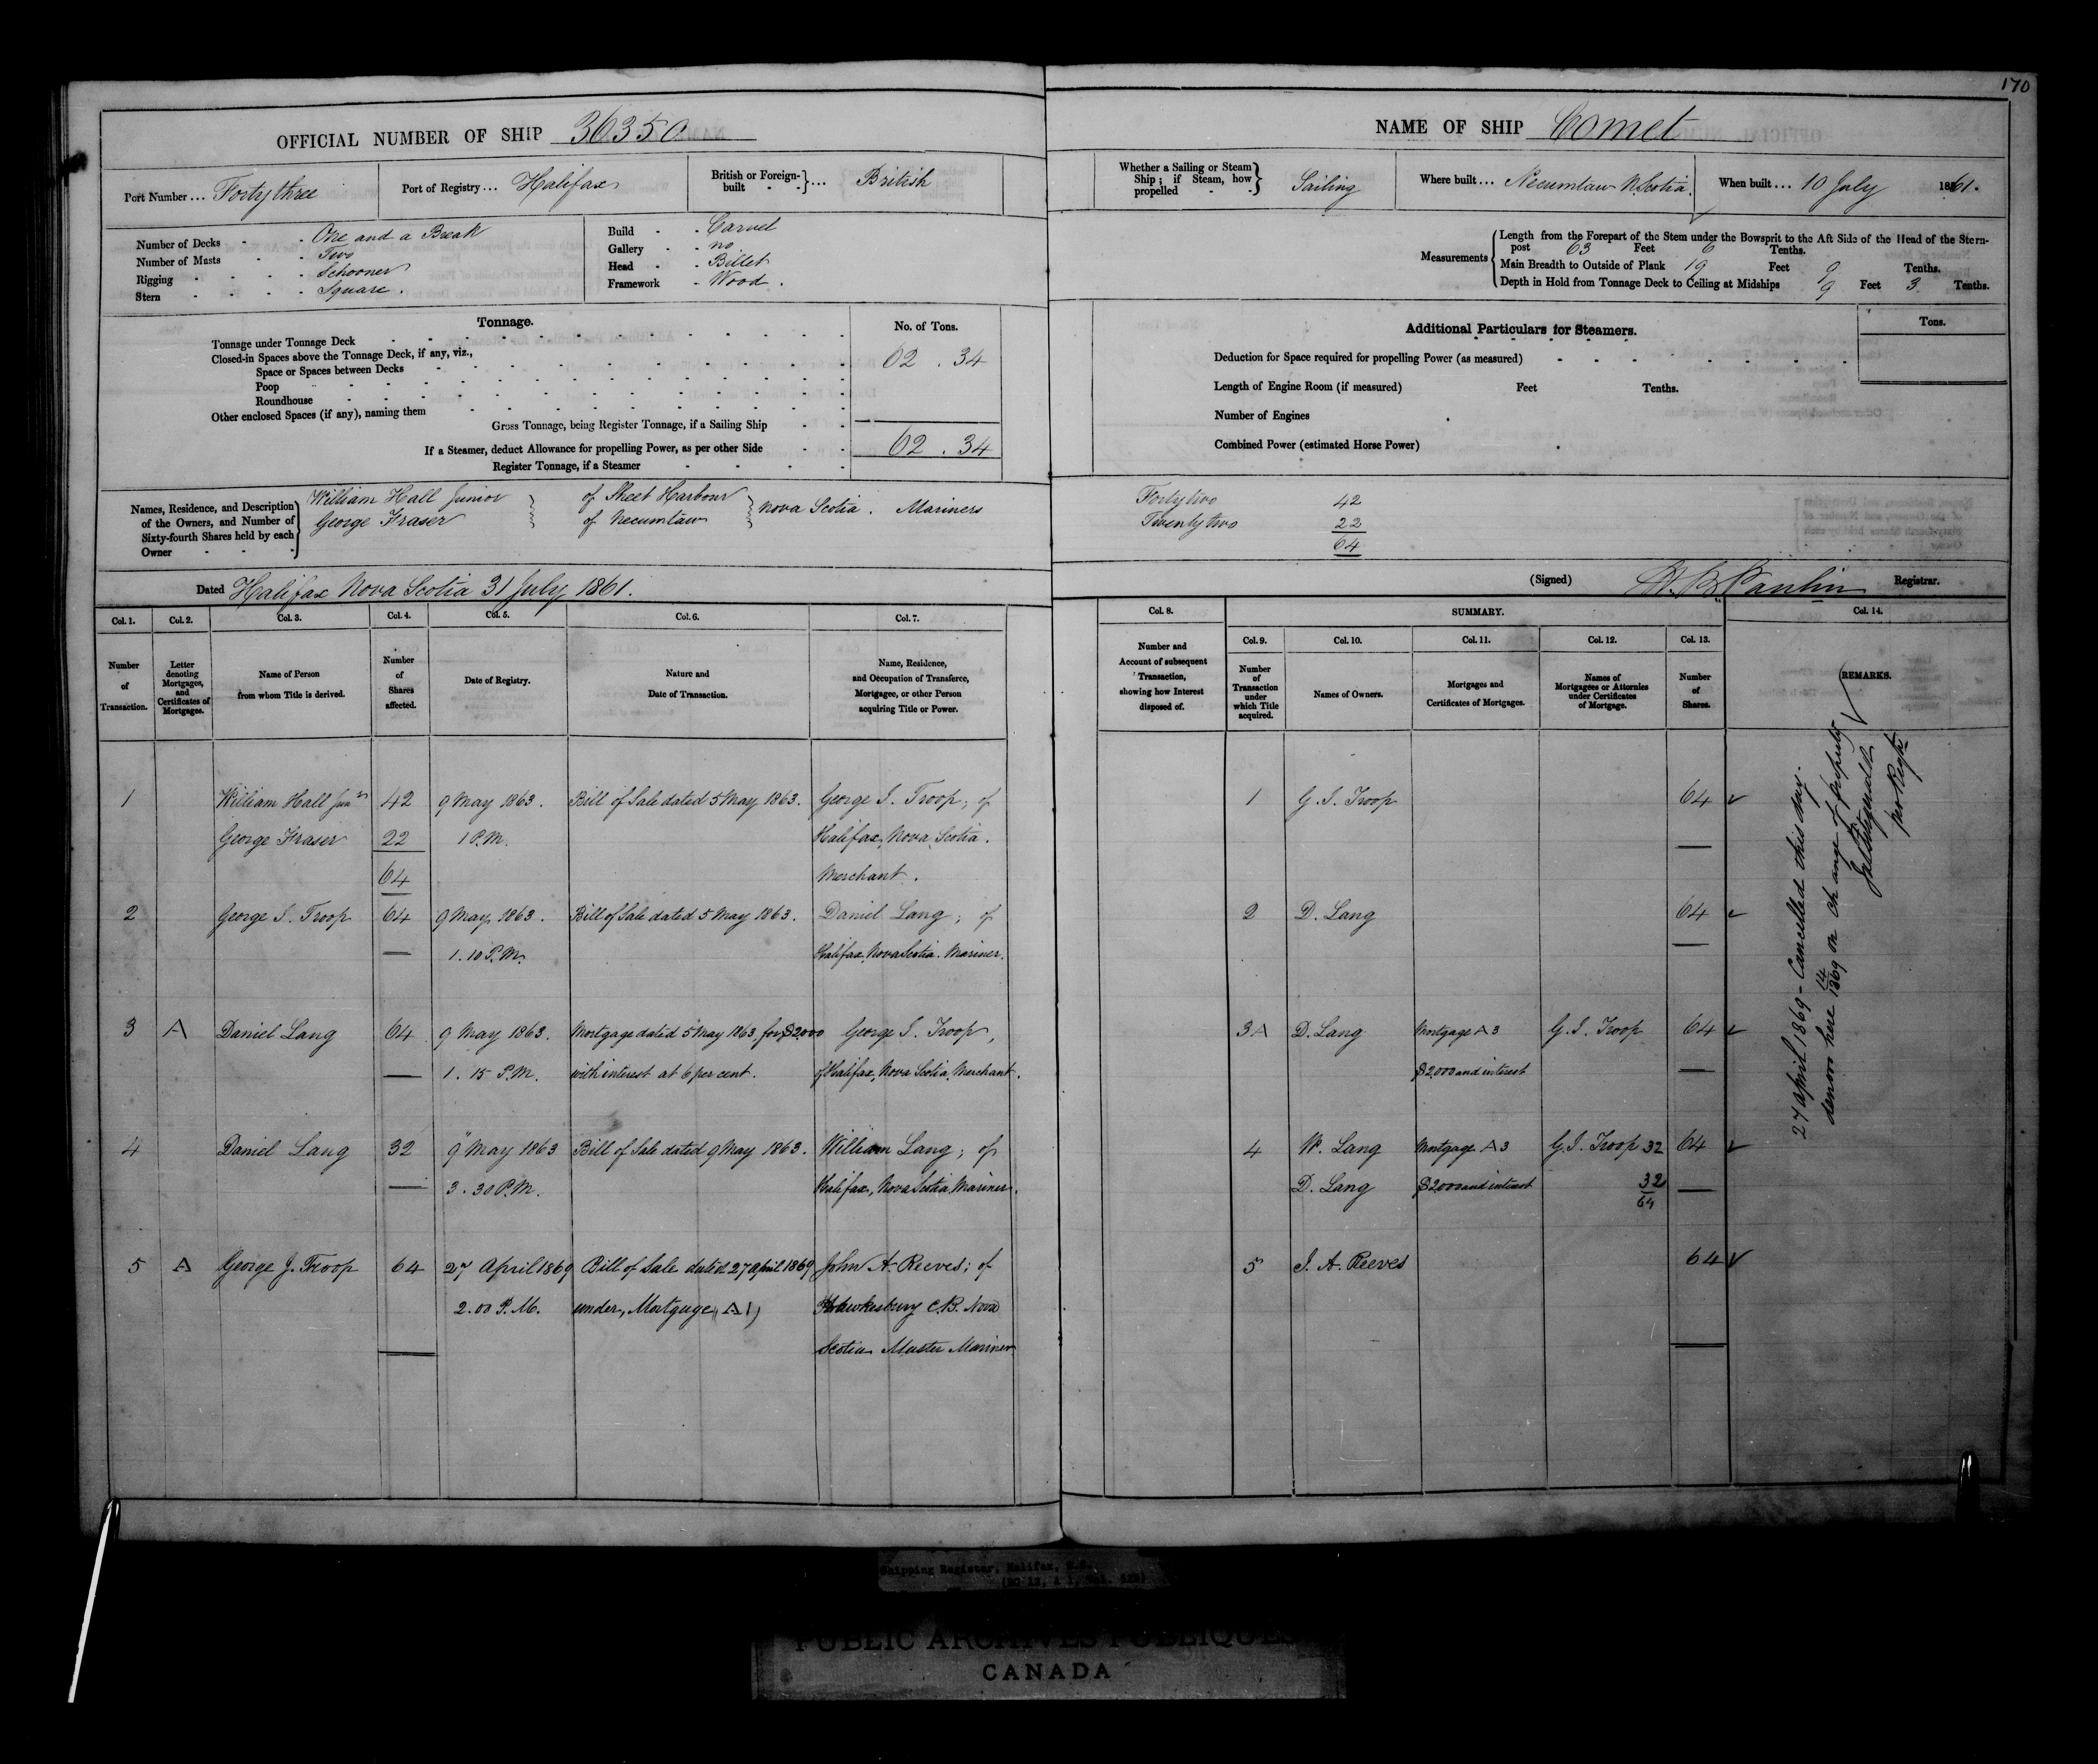 170
OFFICIAL NUMBER OF SHIP 36350
NAME OF SHIP Comet
Port Number ... Forty three
Port of Registry ... Halifax
British or Foreign-built ... British
Whether a Sailing or Steam Ship; if Steam, how propelled Sailing
Where built ... Necumtaw N. Scotia.
When built ... 10 July 1861.
Number of Decks - One and a Break
Number of Masts - Two
Rigging - Schooner
Stern - Square.
Build - Carvel
Gallery - no
Head - Billet
Framework - Wood.
Measurements
Length from the Forepart of the Stem under the Bowsprit to the Aft Side of the Head of the Stern-
post 63 Feet 6 Tenths.
Main Breadth to Outside of Plank 19 Feet 9 Tenths.
Depth in Hold from Tonnage Deck to Ceiling at Midships 9 Feet 3 Tenths.
Tonnage.
No. of Tons.
Tonnage under Tonnage Deck
Closed-in Spaces above the Tonnage Deck, if any, viz.,
Space or Spaces between Decks
62 . 34
Poop
Roundhouse
Other enclosed Spaces (if any), naming them
Gross Tonnage, being Register Tonnage, if a Sailing Ship
If a Steamer, deduct Allowance for propelling Power, as per other Side
62 . 34
Register Tonnage, if a Steamer
Additional Particulars for Steamers.
Tons.
Deduction for Space required for propelling Power (as measured)
Length of Engine Room (if measured) Feet Tenths.
Number of Engines
Combined Power (estimated Horse Power)
Names, Residence, and Description
of the Owners, and Number of
Sixty-fourth Shares held by each
Owner
William Hall Junior of Sheet Harbour
George Fraser of Necumtaw
Nova Scotia. Mariners
Forty two 42
Twenty two 22
64
Dated Halifax Nova Scotia 31 July 1861.
(Signed) H. B. Paulin Registrar.
Col. 1.
Number
of
Transaction.
Col. 2.
Letter
denoting
Mortgages,
and
Certificates of
Mortgages.
Col. 3.
Name of Person
from whom Title is derived.
Col. 4.
Number
of
Shares
affected.
Col. 5.
Date of Registry.
Col. 6.
Nature and
Date of Transaction.
Col. 7.
Name, Residence,
and Occupation of Transferee,
Mortgagee, or other Person
acquiring Title or Power.
Col. 8.
Number and
Account of subsequent
Transaction,
showing how Interest
disposed of.
SUMMARY.
Col. 9.
Number
of
Transaction
under
which Title
acquired.
Col. 10.
Names of Owners.
Col. 11.
Mortgages and
Certificates of Mortgages.
Col. 12.
Names of
Mortgagees or Attornies
under Certificates
of Mortgage.
Col. 13.
Number
of
Shares.
Col. 14.
REMARKS.
1 William Hall Junr 42 9 May 1863. Bill of Sale dated 5 May 1863. George I. Troop; of
George Fraser 22 1 P.M. Halifax, Nova Scotia.
64 Merchant.
2 George I. Troop 64 9 May 1863. Bill of Sale dated 5 May 1863. Daniel Lang; of
1.10 P.M. Halifax, Nova Scotia. Mariner.
3 A Daniel Lang 64 9 May 1863. Mortgage dated 5 May 1863, for $2000 George I. Troop,
1. 15 P.M. with interest at 6 per cent. of Halifax, Nova Scotia, Merchant.
4 Daniel Lang 32 9" May 1863 Bill of Sale dated 9 May 1863. William Lang; of
3. 30 P.M. Halifax, Nova Scotia, Mariner.
5 A George J. Troop 64 27 April 1869 Bill of Sale dated 27 april 1869 John A. Reeves; of
2.00 P.M. under, Mortgage (A1) Pt Hawkesbury C.B. Nova
Scotia Master Mariner
1 G. I. Troop 64
2 D. Lang 64
3A D. Lang Mortgage A3 G. I. Troop 64
$2,000 and interest
4 W. Lang Mortgage A3 G. I. Troop 32 64
D. Lang $2000 and interest 32
64
5 J. A. Reeves 64
27 april 1869 - Cancelled this day.
14
1869 on change of property
Shipping Register, Halifax, N.S.
PUBLIC ARCHIVES PUBLIQUES
CANADA